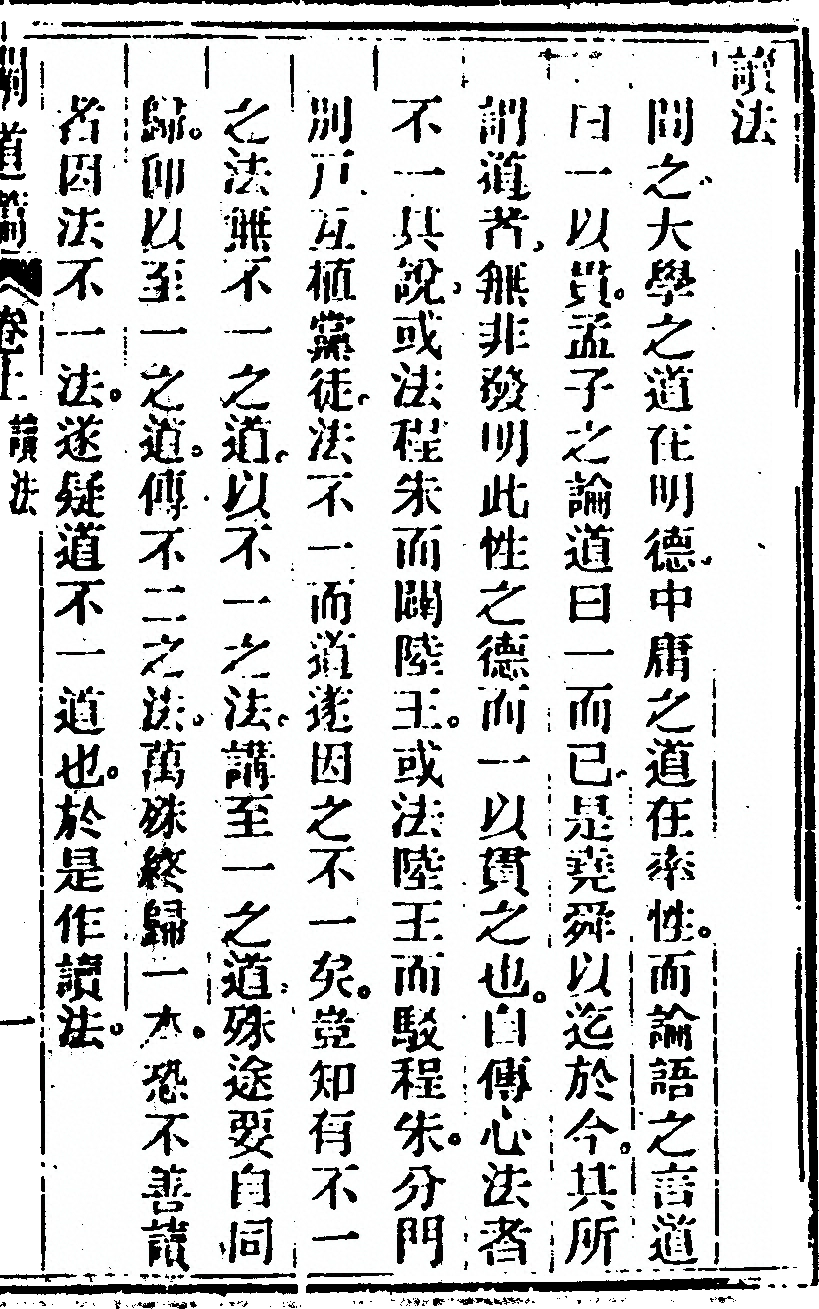 讀法
間之大學之道在明德中庸之道在率性。而論語之言道
曰一以貫。孟子之論道曰一而已是堯舜以迄於今。其所
謂道者無非發明此性之德而一以貫之也。自傳心法者
不一其說或法程朱而闢陸王。或法陸王而駁程朱。分門
別戸互植黨徒法不一而道遂因之不一矣。豈知有不一
之法無不一之道。以不一之法。講至一之道殊途要自同
歸。卽以至一之道。傳不二之法。萬殊終歸一本。恐不善讀
者因法不一法。遂疑道不一道也。於是作讀法。
道篇 卷上 讀法 一